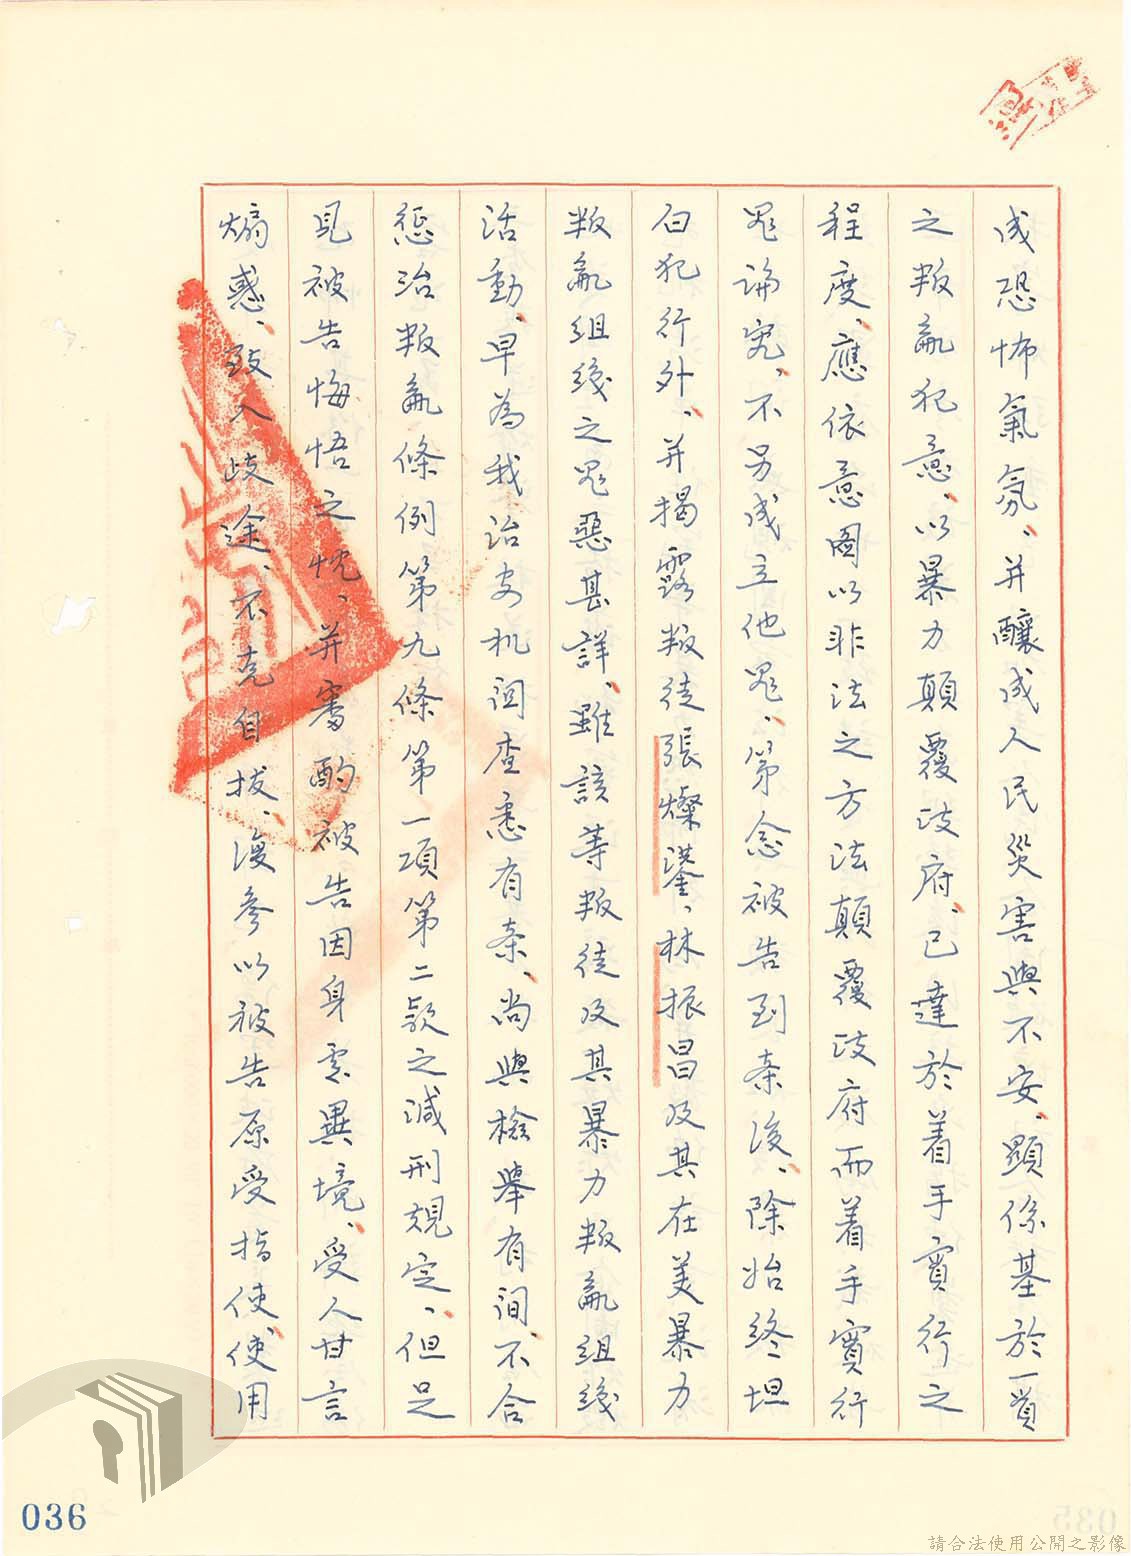 成恐怖氣氛、并釀成人民災害與不安、顯係基於一貫
之叛亂犯意、以暴力顛覆政府、已達於着手實行之
程度、應依意圖以非法之方法顛覆政府而着手實行
罪論究、不另成立他罪、第念被告到案後、除始終坦
白犯行外、并揭露叛徒張燦鍙、林振昌及其在美暴力
叛亂組織之罪惡甚詳、雖該等叛徒及其暴力叛亂組織
活動、早為我治安机関查悉有案、尚與檢舉有间、不合
懲治叛亂條例第九條第一項第二款之減刑規定、但足
見被告悔悟之忱、并審酌被告因身處異境、受人甘言
煽惑、致入歧途、不克自拔、復參以被告原受指使、使用
036
請合法使用公開之影像